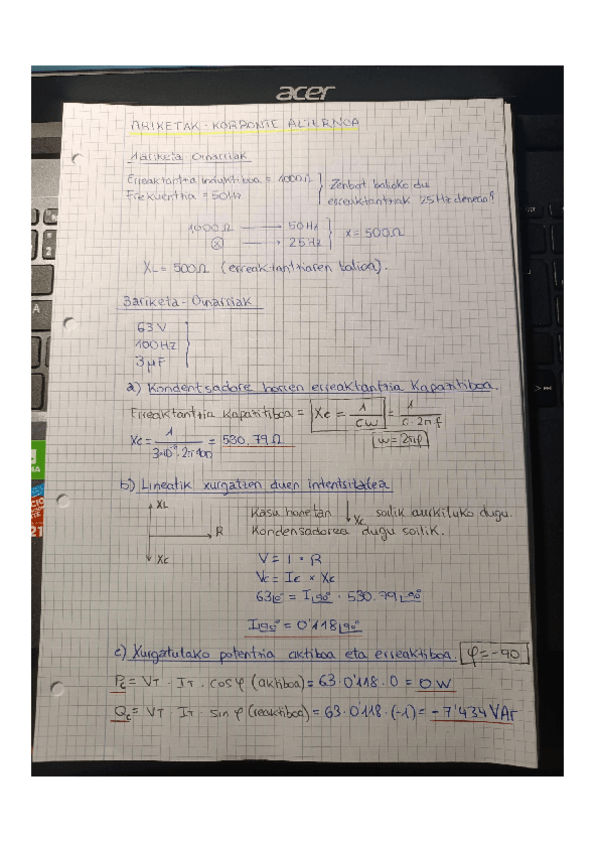 acer
ARIKETAK - KORRONTE ALTERNOA
1.ariketa - Oinarriak
Erreaktantzia induktiboa = 1000Ω
Frekuentzia = 50Hz
Zenbat balioko du
erreaktantziak 25Hz denean?
1000Ω → 50Hz
X → 25Hz
X = 500Ω
XL = 500Ω (erreaktantziaren balioa).
3.ariketa - Oinarriak
63V
100HZ
3μF
a) Kondentsadore horren erreaktantzia kapazitiboa.
Erreaktantzia kapazitiboa = Xc = 1/cω = 1/c·2π·f
Xc = 1/3·10⁻⁶·2π·100 = 530.79Ω
ω = 2πf
b) Lineatik xurgatzen duen intentsitatea
XL
R
Xc
Kasu honetan ↓Xc soilik aurkituko dugu.
Kondensadorea dugu soilik.
V = I · R
Vc = Ic × Xc
63∟0° = I∟90° · 530.79∟-90°
I∟90° = 0'118∟90°
c) Xurgatutako potentzia aktiboa eta erreaktiboa.
φ = -90
Pc = VT · IT · cosφ (aktiboa) = 63·0'118·0 = 0W
Qc = VT · IT · sinφ (reaktiboa) = 63·0'118·(-1) = -7'434VAr